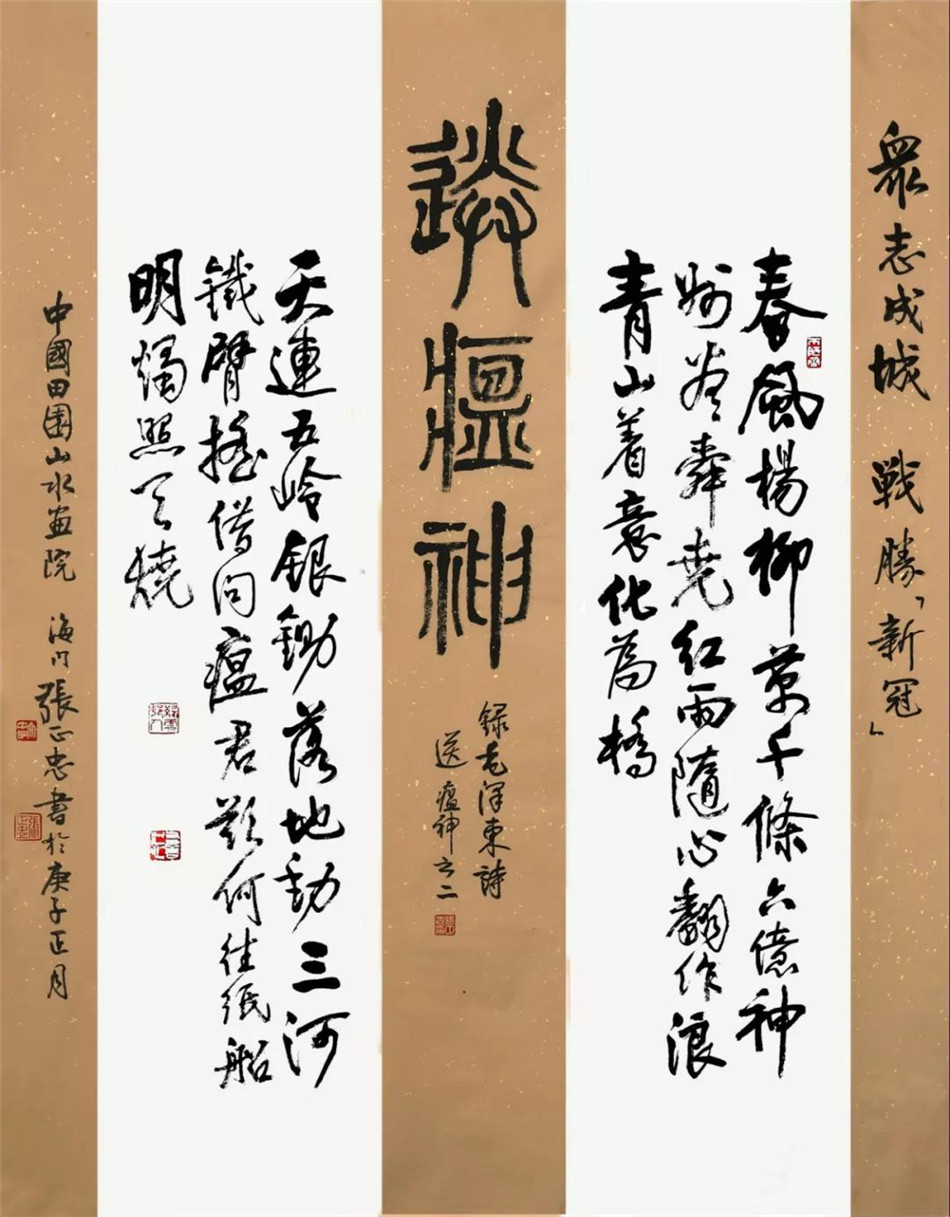 眾志成城 戦勝「新冠」
春風楊柳萬千條六億神
州盡舜堯紅雨隨心翻作浪
青山着意化為橋
送瘟神
錄毛澤東詩
送瘟神之二
天連五岭銀鋤落地動三河
鐵臂搖借問瘟君欲何往紙船
明燭照天燒
中國田園山水畫院 海門張正忠書於庚子正月